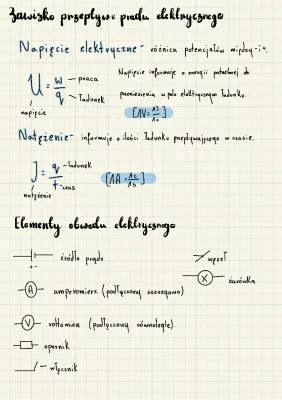 Zjawisko przepływu prądu elektrycznego
Napięcie elektryczne - różnica potencjałów między - i +.
U = W/q
praca
ładunek
napięcie
Napięcie informuje o energii potrzebnej do
przeniesienia w polu elektrycznym ładunku.
[1V = 1J/1C]
Natężenie - informuje o ilości ładunku przepływającego w czasie.
I = q/t
ładunek
czas
natężenie
[1A = 1C/1s]
Elementy obwodu elektrycznego
źródło prądu
węzeł
A
amperomierz (podłączony szeregowo)
X
żarówka
V
woltomierz (podłączony równolegle)
opornik
włącznik